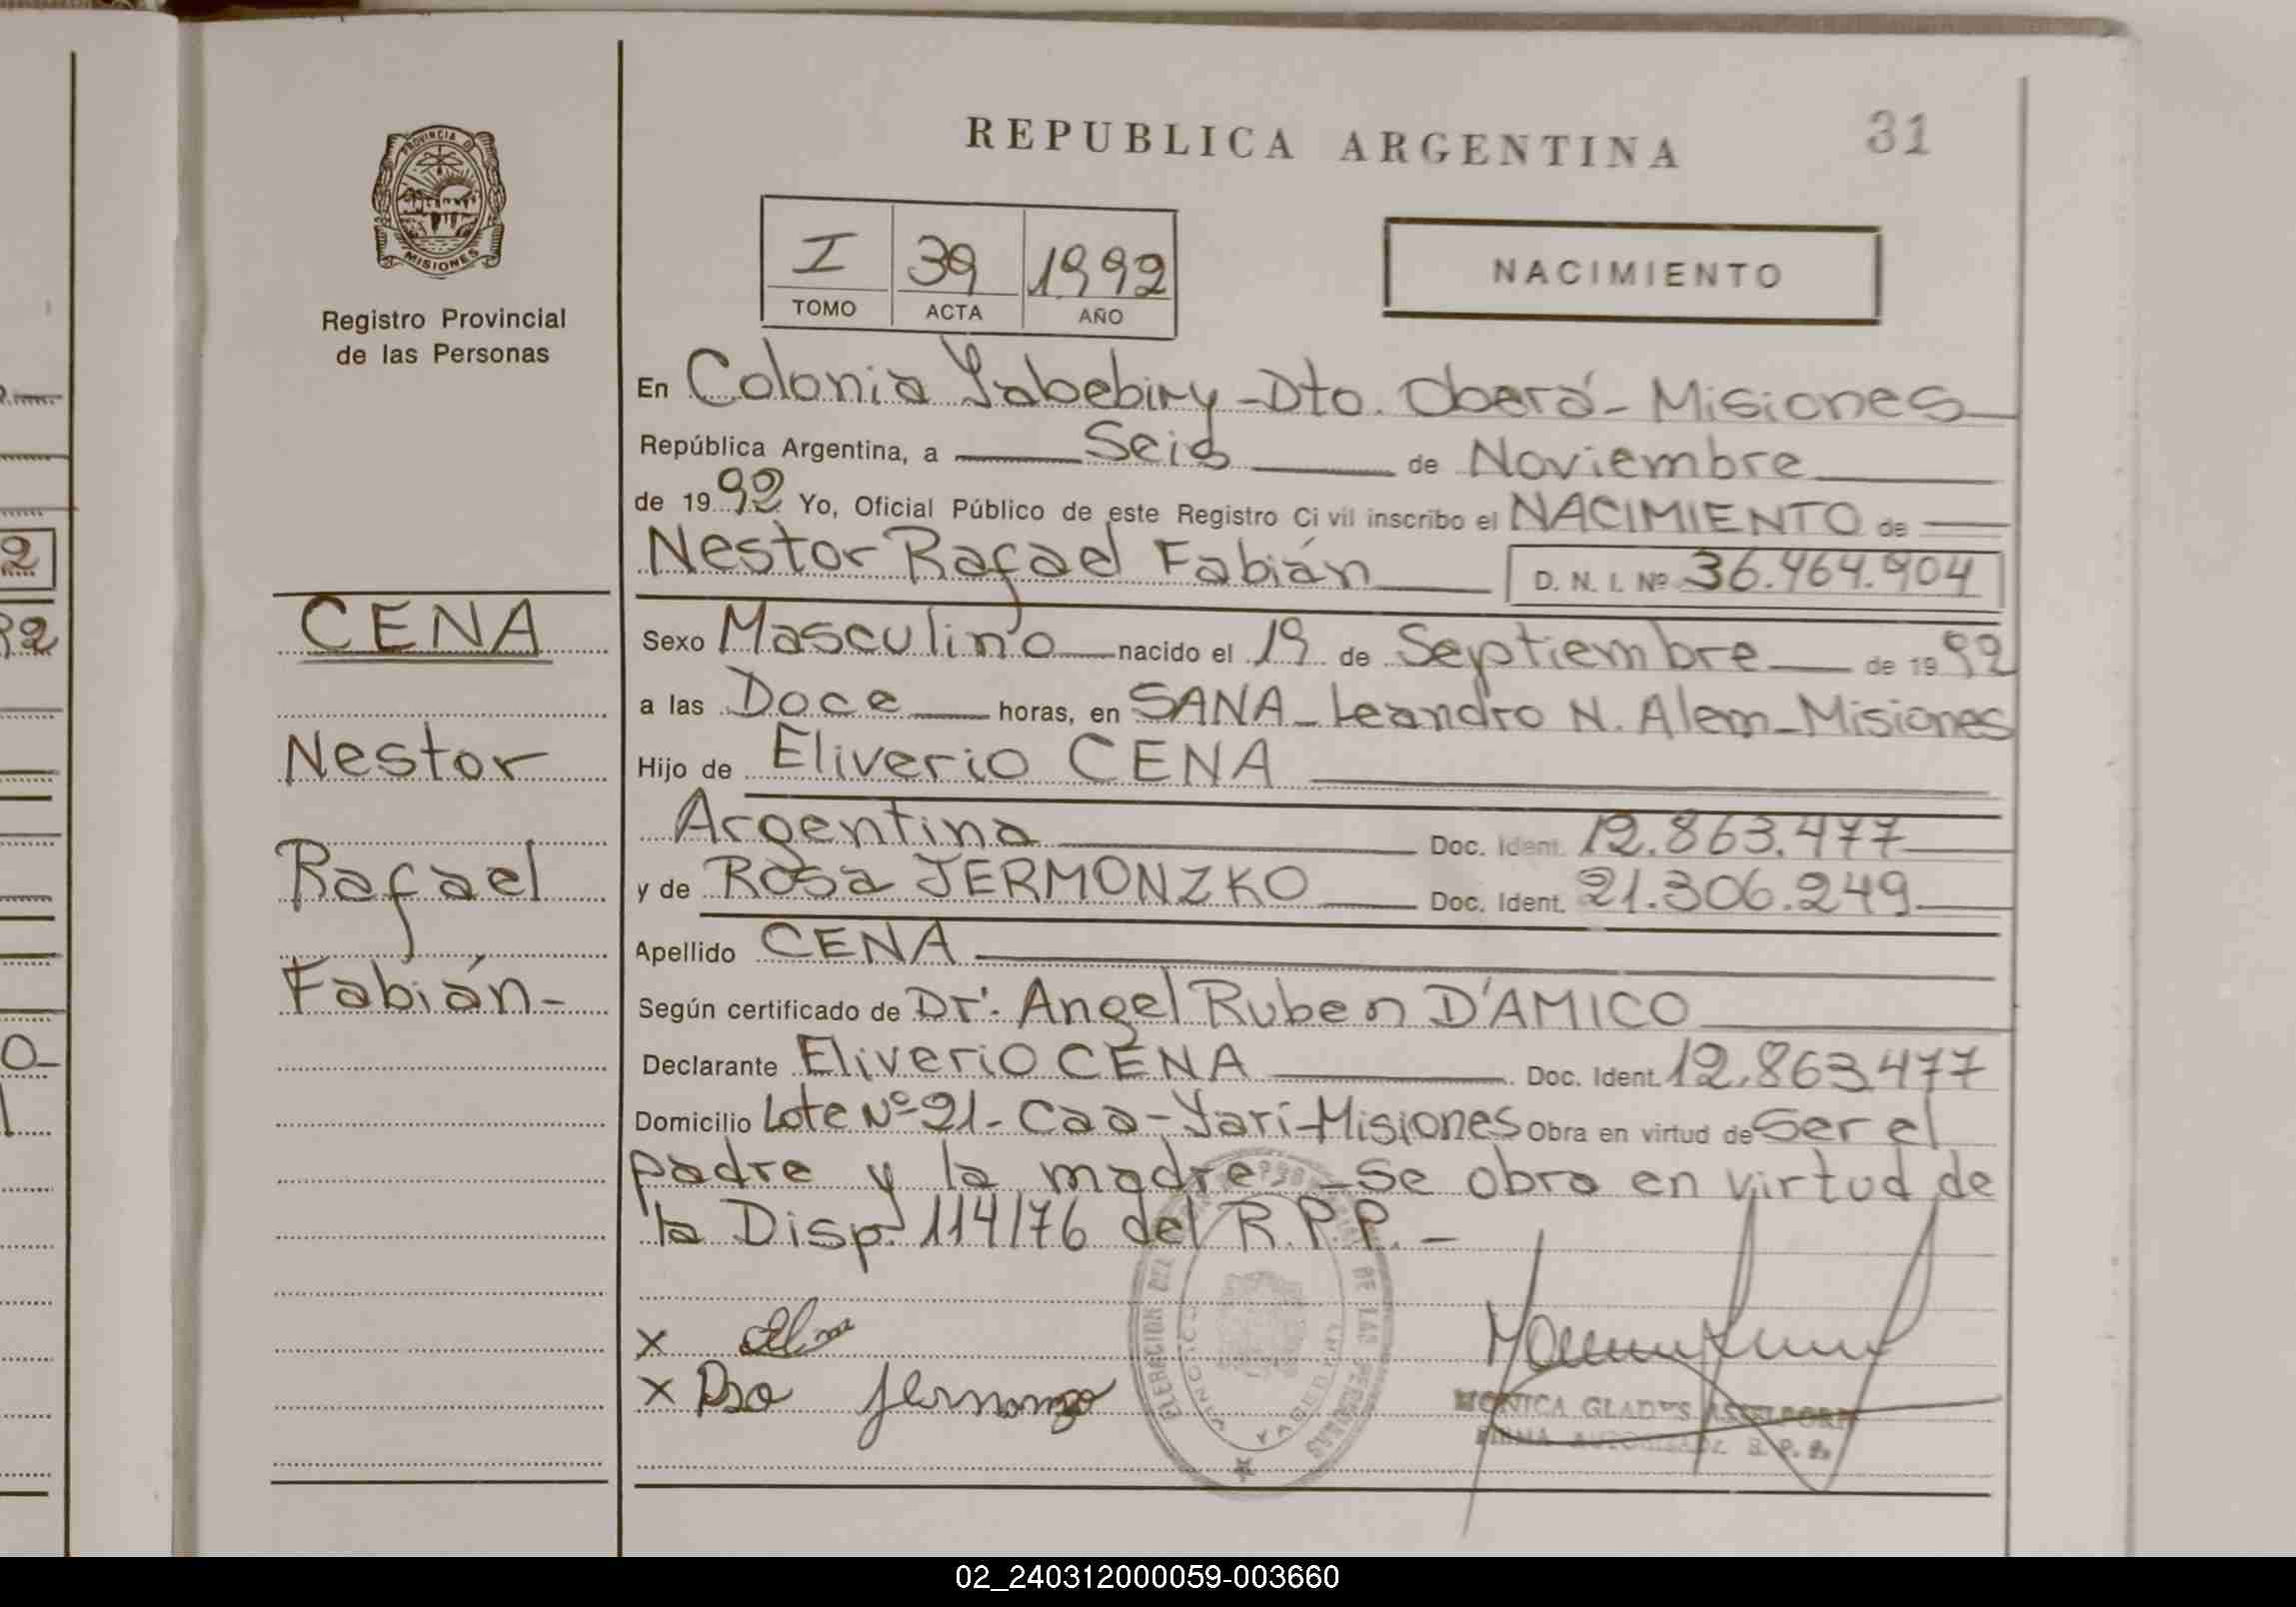 REPUBLICA ARGENTINA
31
PROVINCIA D
MISIONES
Registro Provincial
de las Personas
I 39 1992
TOMO ACTA AÑO
NACIMIENTO
En Colonia Yabebiry - Dto. Oberá - Misiones
República Argentina, a Seis de Noviembre
de 1992 Yo, Oficial Público de este Registro Ci vil inscribo el NACIMIENTO de
Nestor Rafael Fabián D. N. I. Nº 36.464.904
CENA
Nestor
Rafael
Fabián-
Sexo Masculino nacido el 19 de Septiembre de 1992
a las Doce horas, en SANA - Leandro N. Alem - Misiones
Hijo de Eliverio CENA
Argentina Doc. Ident. 12.863.477
y de Rosa JERMONZKO Doc. Ident. 21.306.249
Apellido CENA
Según certificado de Dr. Angel Ruben D'AMICO
Declarante Eliverio CENA Doc. Ident. 12.863477
Domicilio Lote Nº 21 - Caa-Yarí-Misiones Obra en virtud de Ser el
padre y la madre - Se obra en virtud de
la Disp. 114/76 del R.P.P. -
X
X
DE LAS PERSONAS
YABEBIRY
MONICA GLADYS
FIRMA AUTORIZADA R. P. P.
02_240312000059-003660